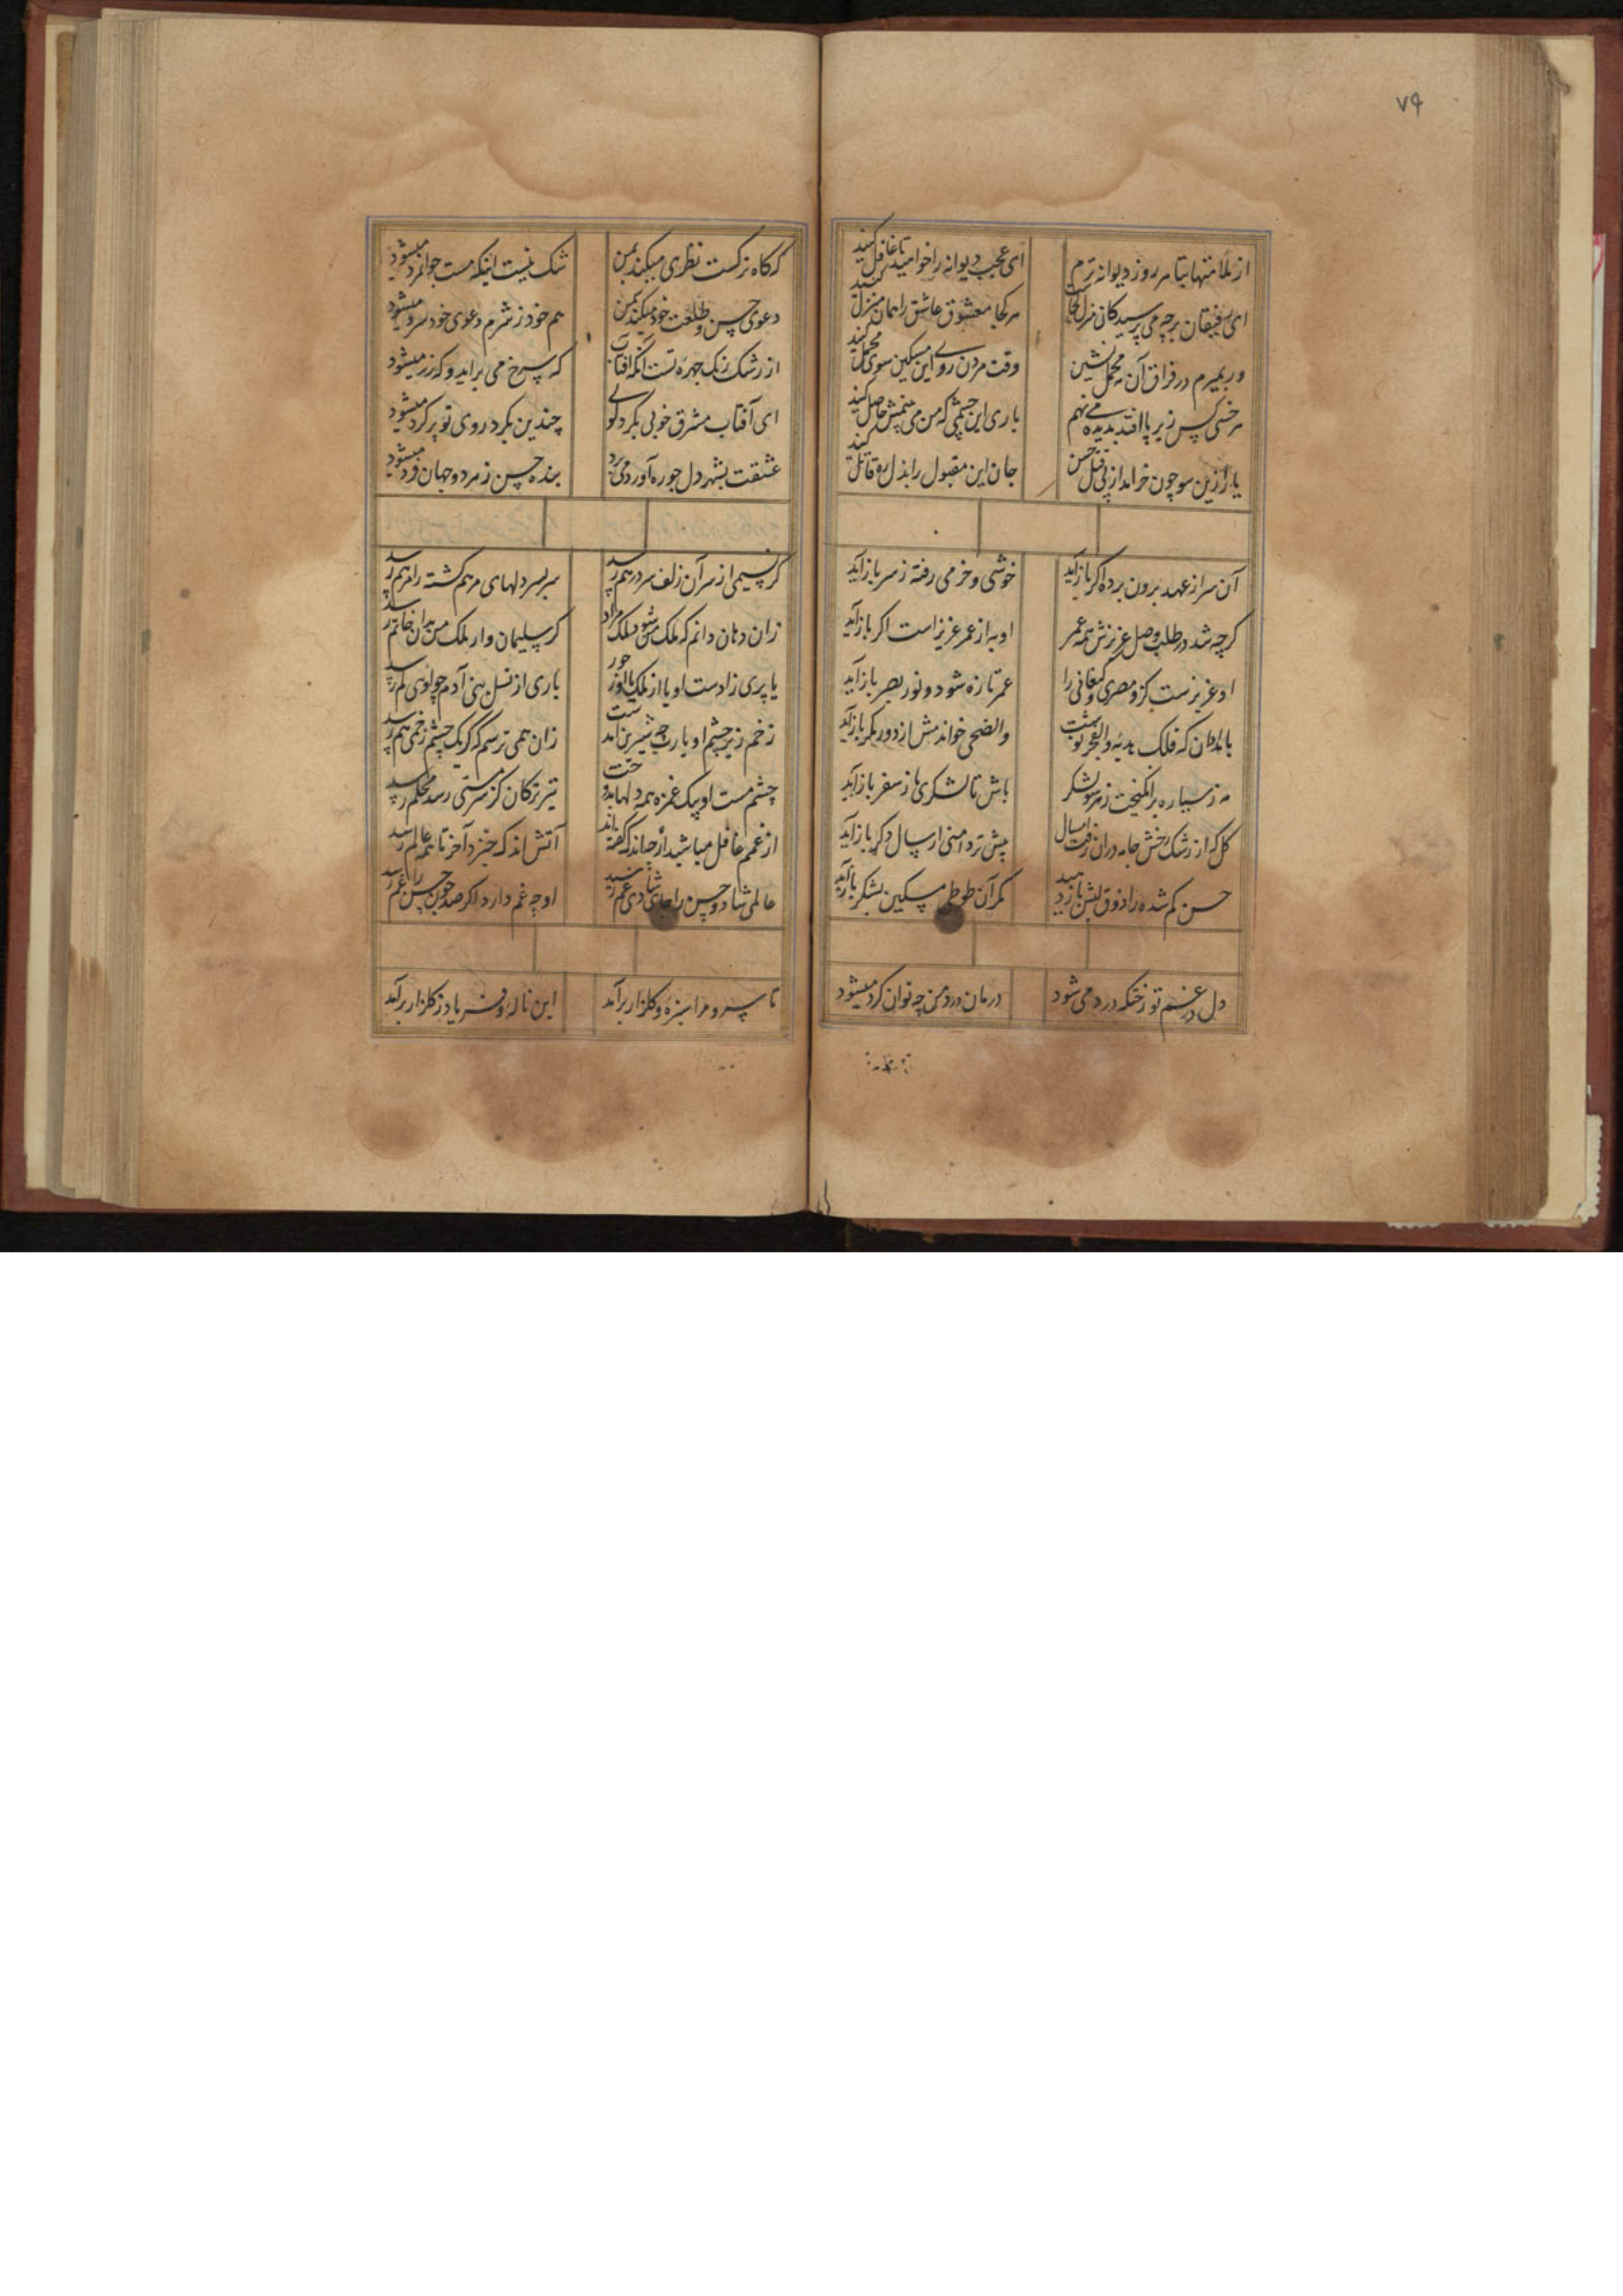 ۷۹
از ملامتهایتا هر روز دیوانه ترم
ای عجب دیوانه را خواهید تا غافل کنید
ای رفیقان هرچه می پرسید کان منزل کجاست
هر کجا معشوق عاشق را همان منزل کنید
ور بمیرم در فراق آن مه محمل نشین
وقت مردن روے این مسکین سوی محمل کنید
هر خسی کس زیر پا افتد بدیده می نهم
باری این چشمی که من می بینمش حاصل کنید
یار ازین سو چون خرامد از پی قتل حسن
جان این مقبول را بذل ره قاتل کنید
آن سر از عهد برون برده اگر باز آید
خوشی و خرمی رفته ز سر باز آید
گرچه شد در طلب وصل عزیزش همه عمر
او به از عمر عزیز است اگر باز آید
او عزیزست کزو مصری و کنعانی را
عمر تازه شود و نور بصر باز آید
بامدادان که فلک هدیه والفجر نوشت
والضحی خواندمش از دور مگر باز آید
مه ز سیاره برانگیخت ز هر سو لشکر
باش تا لشکری ما ز سفر باز آید
گل که از رشک رخش جامه دران رفت امسال
پیش تر دامنی ار سال دگر باز آید
حسن گم شده را ذوق لبش باز دهید
مگر آن طوطی مسکین بشکر باز آید
دل در غم تو زخنکه درد می شود
درمان درد من چه توان کرد میشود
که گاه نرکست نظری میکند بمن
شک نیست اینکه مست جوانمرد میشود
دعوی حسن و طلعت خود میکند بمن
هم خود ز شرم دعوی خود سرد میشود
از رشک رنگ چهره تست آنکه آفتاب
که سرخ می براید و که زرد میشود
ای آفتاب مشرق خوبی بگرد کوی
چندین مگرد روی تو پر کرد میشود
عشقت بشهر دل چو ره آورد می برد
بنده حسن ز مرد و جهان فرد میشود
گر نسیمی از سر آن زلف سر درهم رسد
سر بسر دلهای مرهم گشته را مرهم رسد
زان دهان دانم که ملک من شود ملک مراد
گر سلیمان وار ملک من بدان خاتم رسد
یا پری زادست او یا از ملک یا از حور
باری از نسل بنی آدم چو اوی کم رسد
زخم زیر چشم او یا رب چه شیرین آمدست
زان همی ترسم که گر یک چشم زخمی هم رسد
چشم مست او بیک غمزه همه دلها بدوخت
تیر ترکان کز سر مستی رسد محکم رسد
از غمم غافل مباشید ار چه اندک گفته اند
آتش اندک خیزد آخر تا همه عالم رسد
عالمی شاد و حسن را جای شادی غم رسید
او چه غم دارد اگر صد چون حسن را غم رسد
تا سرو مرا سبزه و گلزار برآمد
این ناله و فریاد ز گلزار برآمد